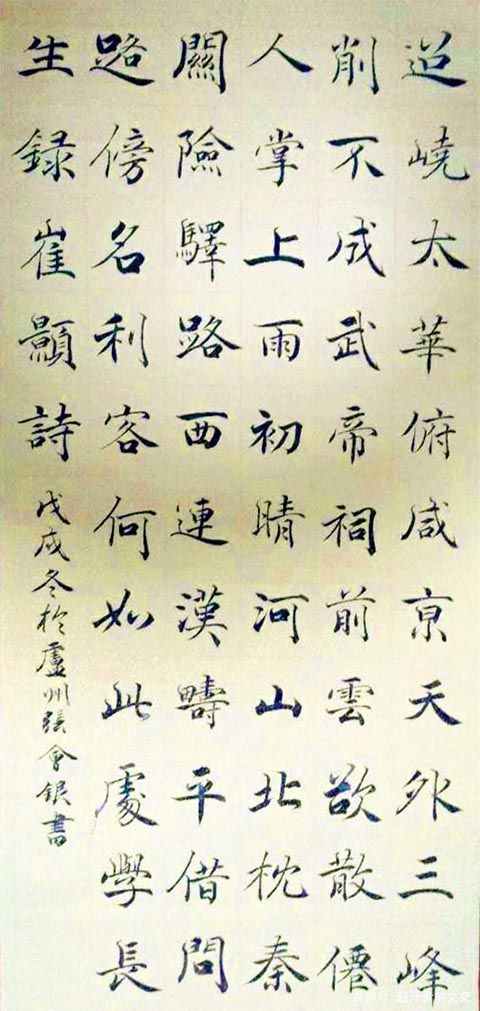 迢嶢太華俯咸京天外三峰
削不成武帝祠前雲欲散僊
人掌上雨初晴河山北枕秦
關險驛路西連漢疇平借問
路傍名利客何如此處學長
生録崔顥詩
戊戌冬於廬州張會銀書